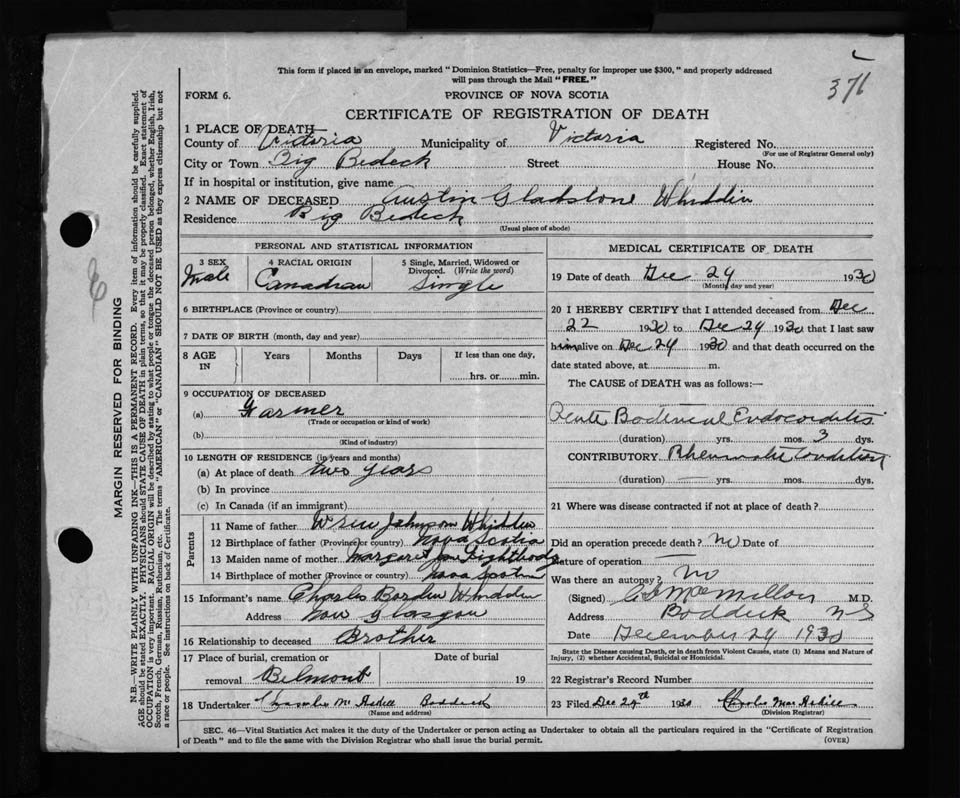 371
This form if placed in an envelope, marked "Dominion Statistics—Free, penalty for improper use $300," and properly addressed
will pass through the Mail "FREE."
FORM 6.
PROVINCE OF NOVA SCOTIA
CERTIFICATE OF REGISTRATION OF DEATH
1 PLACE OF DEATH—
County of Victoria Municipality of Victoria Registered No.
(For use of Registrar General only)
City or Town Big Bedeck Street House No.
If in hospital or institution, give name
2 NAME OF DECEASED Austin Gladstone Whidden
Residence Big Bedeck
(Usual place of abode)
PERSONAL AND STATISTICAL INFORMATION
3 SEX
Male
4 RACIAL ORIGIN
Canadian
5 Single, Married, Widowed or
Divorced. (Write the word)
Single
6 BIRTHPLACE (Province or country)
7 DATE OF BIRTH (month, day and year)
8 AGE
IN
Years Months Days If less than one day,
hrs. or min.
9 OCCUPATION OF DECEASED
(a) Farmer
(Trade or occupation or kind of work)
(b)
(Kind of industry)
10 LENGTH OF RESIDENCE (in years and months)
(a) At place of death two years
(b) In province
(c) In Canada (if an immigrant)
Parents
11 Name of father Johnson Whidden
12 Birthplace of father (Province or country) Nova Scotia
13 Maiden name of mother Margaret Jane Lightbody
14 Birthplace of mother (Province or country) Nova Scotia
15 Informant's name Charles Borden Whidden
Address New Glasgow
16 Relationship to deceased Brother
17 Place of burial, cremation or Date of burial
removal Belmont 19
18 Undertaker Charles McAskill Baddeck
(Name and address)
MEDICAL CERTIFICATE OF DEATH
19 Date of death Dec 24 1930
(Month, day and year)
20 I HEREBY CERTIFY that I attended deceased from Dec
22 1930 to Dec 24 1930 that I last saw
him alive on Dec 24 1930 and that death occurred on the
date stated above, at m.
The CAUSE of DEATH was as follows:—
Acute Bacterial Endocarditis
(duration) yrs. mos. 3 dys.
CONTRIBUTORY Rheumatic Condition
(duration) — yrs. mos. dys.
21 Where was disease contracted if not at place of death?
Did an operation precede death? No Date of
Nature of operation
Was there an autopsy? No
(Signed) McMillan M.D.
Address Baddeck NS
Date December 24 1930
State the Disease causing Death, or in death from Violent Causes, state (1) Means and Nature of
Injury, (2) whether Accidental, Suicidal or Homicidal.
22 Registrar's Record Number
23 Filed Dec 24th 1930 Charles MacAskill
(Division Registrar)
SEC. 46—Vital Statistics Act makes it the duty of the Undertaker or person acting as Undertaker to obtain all the particulars required in the "Certificate of Registration
of Death" and to file the same with the Division Registrar who shall issue the burial permit.
(OVER)
MARGIN RESERVED FOR BINDING
N.B.—WRITE PLAINLY WITH UNFADING INK—THIS IS A PERMANENT RECORD. Every item of information should be carefully supplied.
AGE should be stated EXACTLY. PHYSICIANS should STATE CAUSE OF DEATH in plain terms, so that it may be properly classified. Exact statement of
OCCUPATION is very important. RACIAL ORIGIN will be described by stating to what people or tongue the deceased person belonged, whether English, Irish,
Scotch, French, German, Russian, Ruthenian, etc. The terms "AMERICAN" or "CANADIAN" SHOULD NOT BE USED as they express citizenship but not
a race or people. See instructions on back of Certificate.